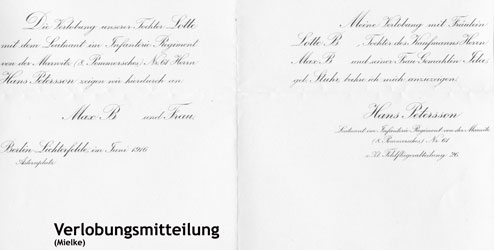 Die Verlobung unserer Tochter Lotte
mit dem Leutnant im Infanterie-Regiment
von der Marwitz (8. Pommersches) Nr. 61 Herrn
Hans Petersson zeigen wir hierdurch an
Max B und Frau
Berlin-Lichterfelde, im Juni 1916
Meine Verlobung mit Fräulein
Lotte B Tochter des Kaufmanns Herrn
Max B und seiner Frau Gemahlin
geb. beehre ich mich anzuzeigen
Hans Petersson
Leutnant im Infanterie-Regiment von der Marwitz
(8. Pommersches) Nr. 61
z. Zt. Feldfliegerabteilung 26.
Verlobungsmitteilung
(Mielke)